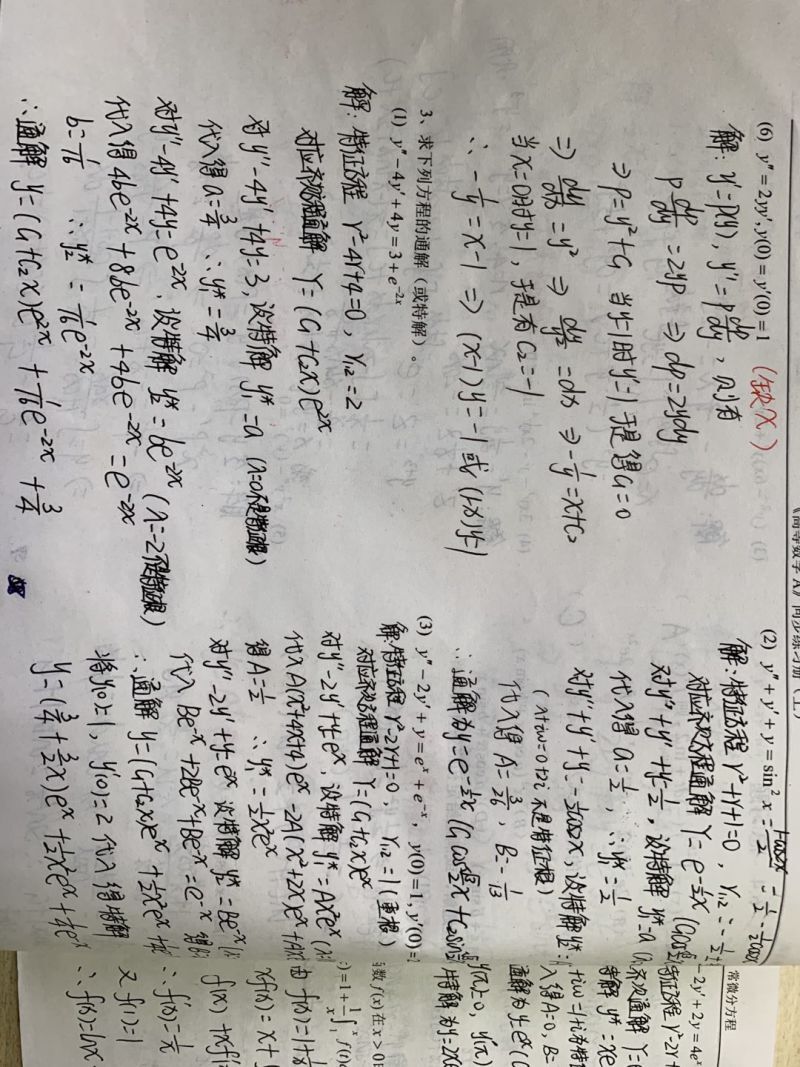 《高等数学A》同步练习册(上)
(6) y″ = 2yy′, y(0) = y′(0) = 1 (缺x)
解: y′=p(y), y″=p dp/dy, 则有
p dp/dy = 2yp ⇒ dp=2ydy
⇒ p=y²+C₁ 当y=1时y′=1 于是得C₁=0
⇒ dy/dx = y² ⇒ dy/y² = dx ⇒ -1/y = x+C₂
当x=0时y=1, 于是有 C₂=-1
∴ -1/y = x-1 ⇒ (x-1)y=-1 或 (1-x)y=1
3、求下列方程的通解(或特解)。
(1) y″ − 4y′ + 4y = 3 + e^{−2x}
解: 特征方程 r²-4r+4=0, r₁,₂=2
对应齐次方程通解 Y=(C₁+C₂x)e^{2x}
对y″-4y′+4y=3, 设特解 y₁*=a (λ=0不是特征根)
代入得 a=3/4 ∴ y₁*=3/4
对y″-4y′+4y=e^{-2x}, 设特解 y₂*=be^{-2x} (λ=-2不是特征根)
代入得 4be^{-2x}+8be^{-2x}+4be^{-2x}=e^{-2x}
b=1/16 ∴ y₂*=1/16 e^{-2x}
∴通解 y=(C₁+C₂x)e^{2x} + 1/16 e^{-2x} + 3/4
(2) y″ + y′ + y = sin² x = 1-cos2x/2 = 1/2 - 1/2cos2x
解: 特征方程 r²+r+1=0, r₁,₂= -1/2
对应齐次方程通解 Y=e^{-1/2x}(C₁cos
对y″+y′+y=1/2, 设特解 y₁*=a
代入得 a=1/2, ∴ y₁*=1/2
对y″+y′+y=-1/2cos2x, 设特解 y₂*=
(λ+iω=0+2i 不是特征根)
代入得 A=3/26, B=-1/13
∴通解为y=e^{-1/2x}(C₁cos√3/2x+C₂sin
(3) y″ − 2y′ + y = e^x + e^{−x}, y(0) = 1, y′(0) =
解: 特征方程 r²-2r+1=0, r₁,₂=1(重根)
对应齐次方程通解 Y=(C₁+C₂x)e^x
对y″-2y′+y=e^x, 设特解 y₁*=Ax²e^x
代入 A(x²+4x+2)e^x-2A(x²+2x)e^x+Ax²
得A=1/2 ∴ y₁*=1/2x²e^x
对y″-2y′+y=e^{-x} 设特解 y₂*=Be^{-x}
代入 Be^{-x}+2Be^{-x}+Be^{-x}=e^{-x}
∴通解 y=(C₁+C₂x)e^x+1/2x²e^x+
将y(0)=1, y′(0)=2 代入得特解
y=(3/4+3/2x)e^x+1/2x²e^x+1/4e^{-x}
常微分方程
− 2y′ + 2y = 4e^x
特征方程 r²-2r+
齐次通解 Y=
特解 y*=xe
入得A=0, B=
通解为y=e^x(C
y(π)=0, y′(π)
特解为y=2x
函数 f(x) 在 x > 0
) = 1 + 1/x ∫ f(t)
由 f(x)=1+1/x
xf(x)=x+
f(x)+xf′
∴f′(x)=1/x
又f(1)=1
∴ f(x)=lnx+